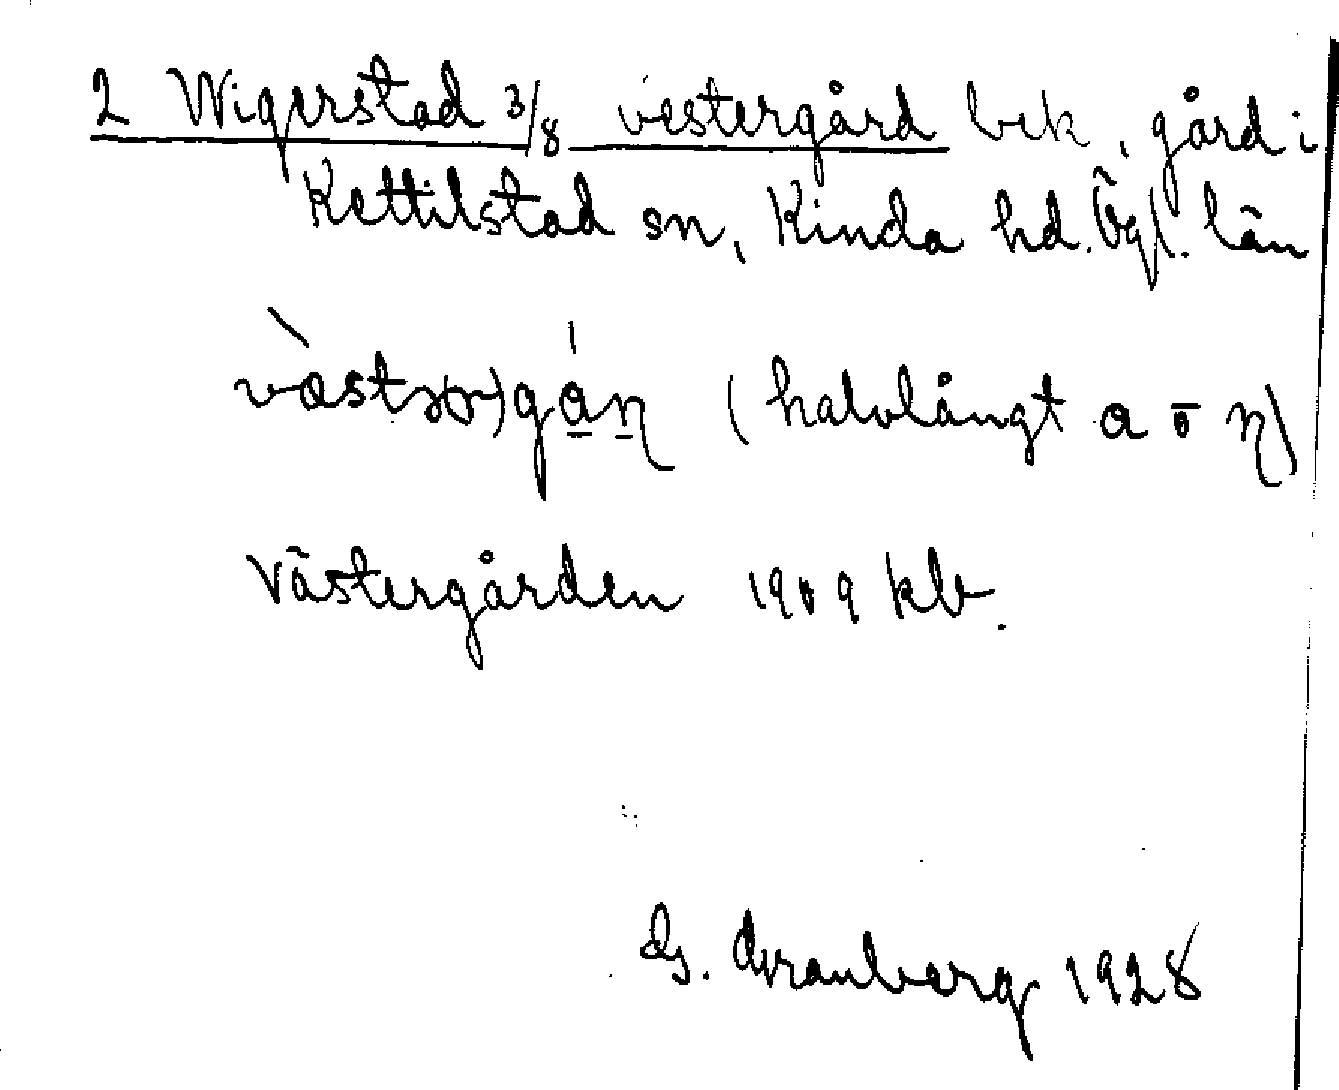 2 Wigerstad 3/8 västergård bek, gård i
Kettilstad sn, Kinda hd. Ögl. län
(halvlångt a o ɳ)
Västergården 1909 klb.
G. Granberg 1928